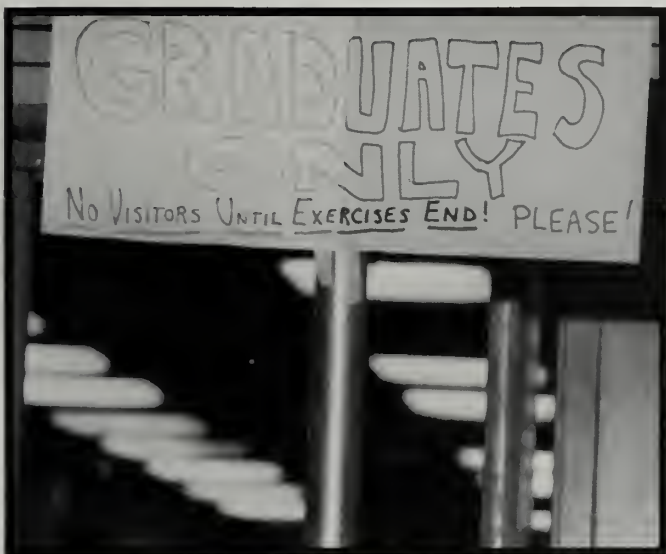 GRADUATES
ONLY
NO VISITORS UNTIL EXERCISES END! PLEASE!